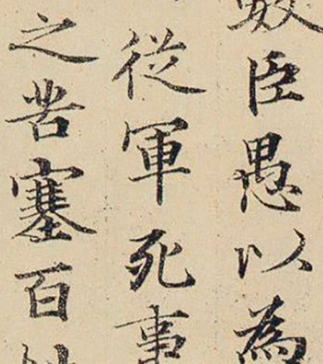 臣愚以為
從軍死事
之苦塞百